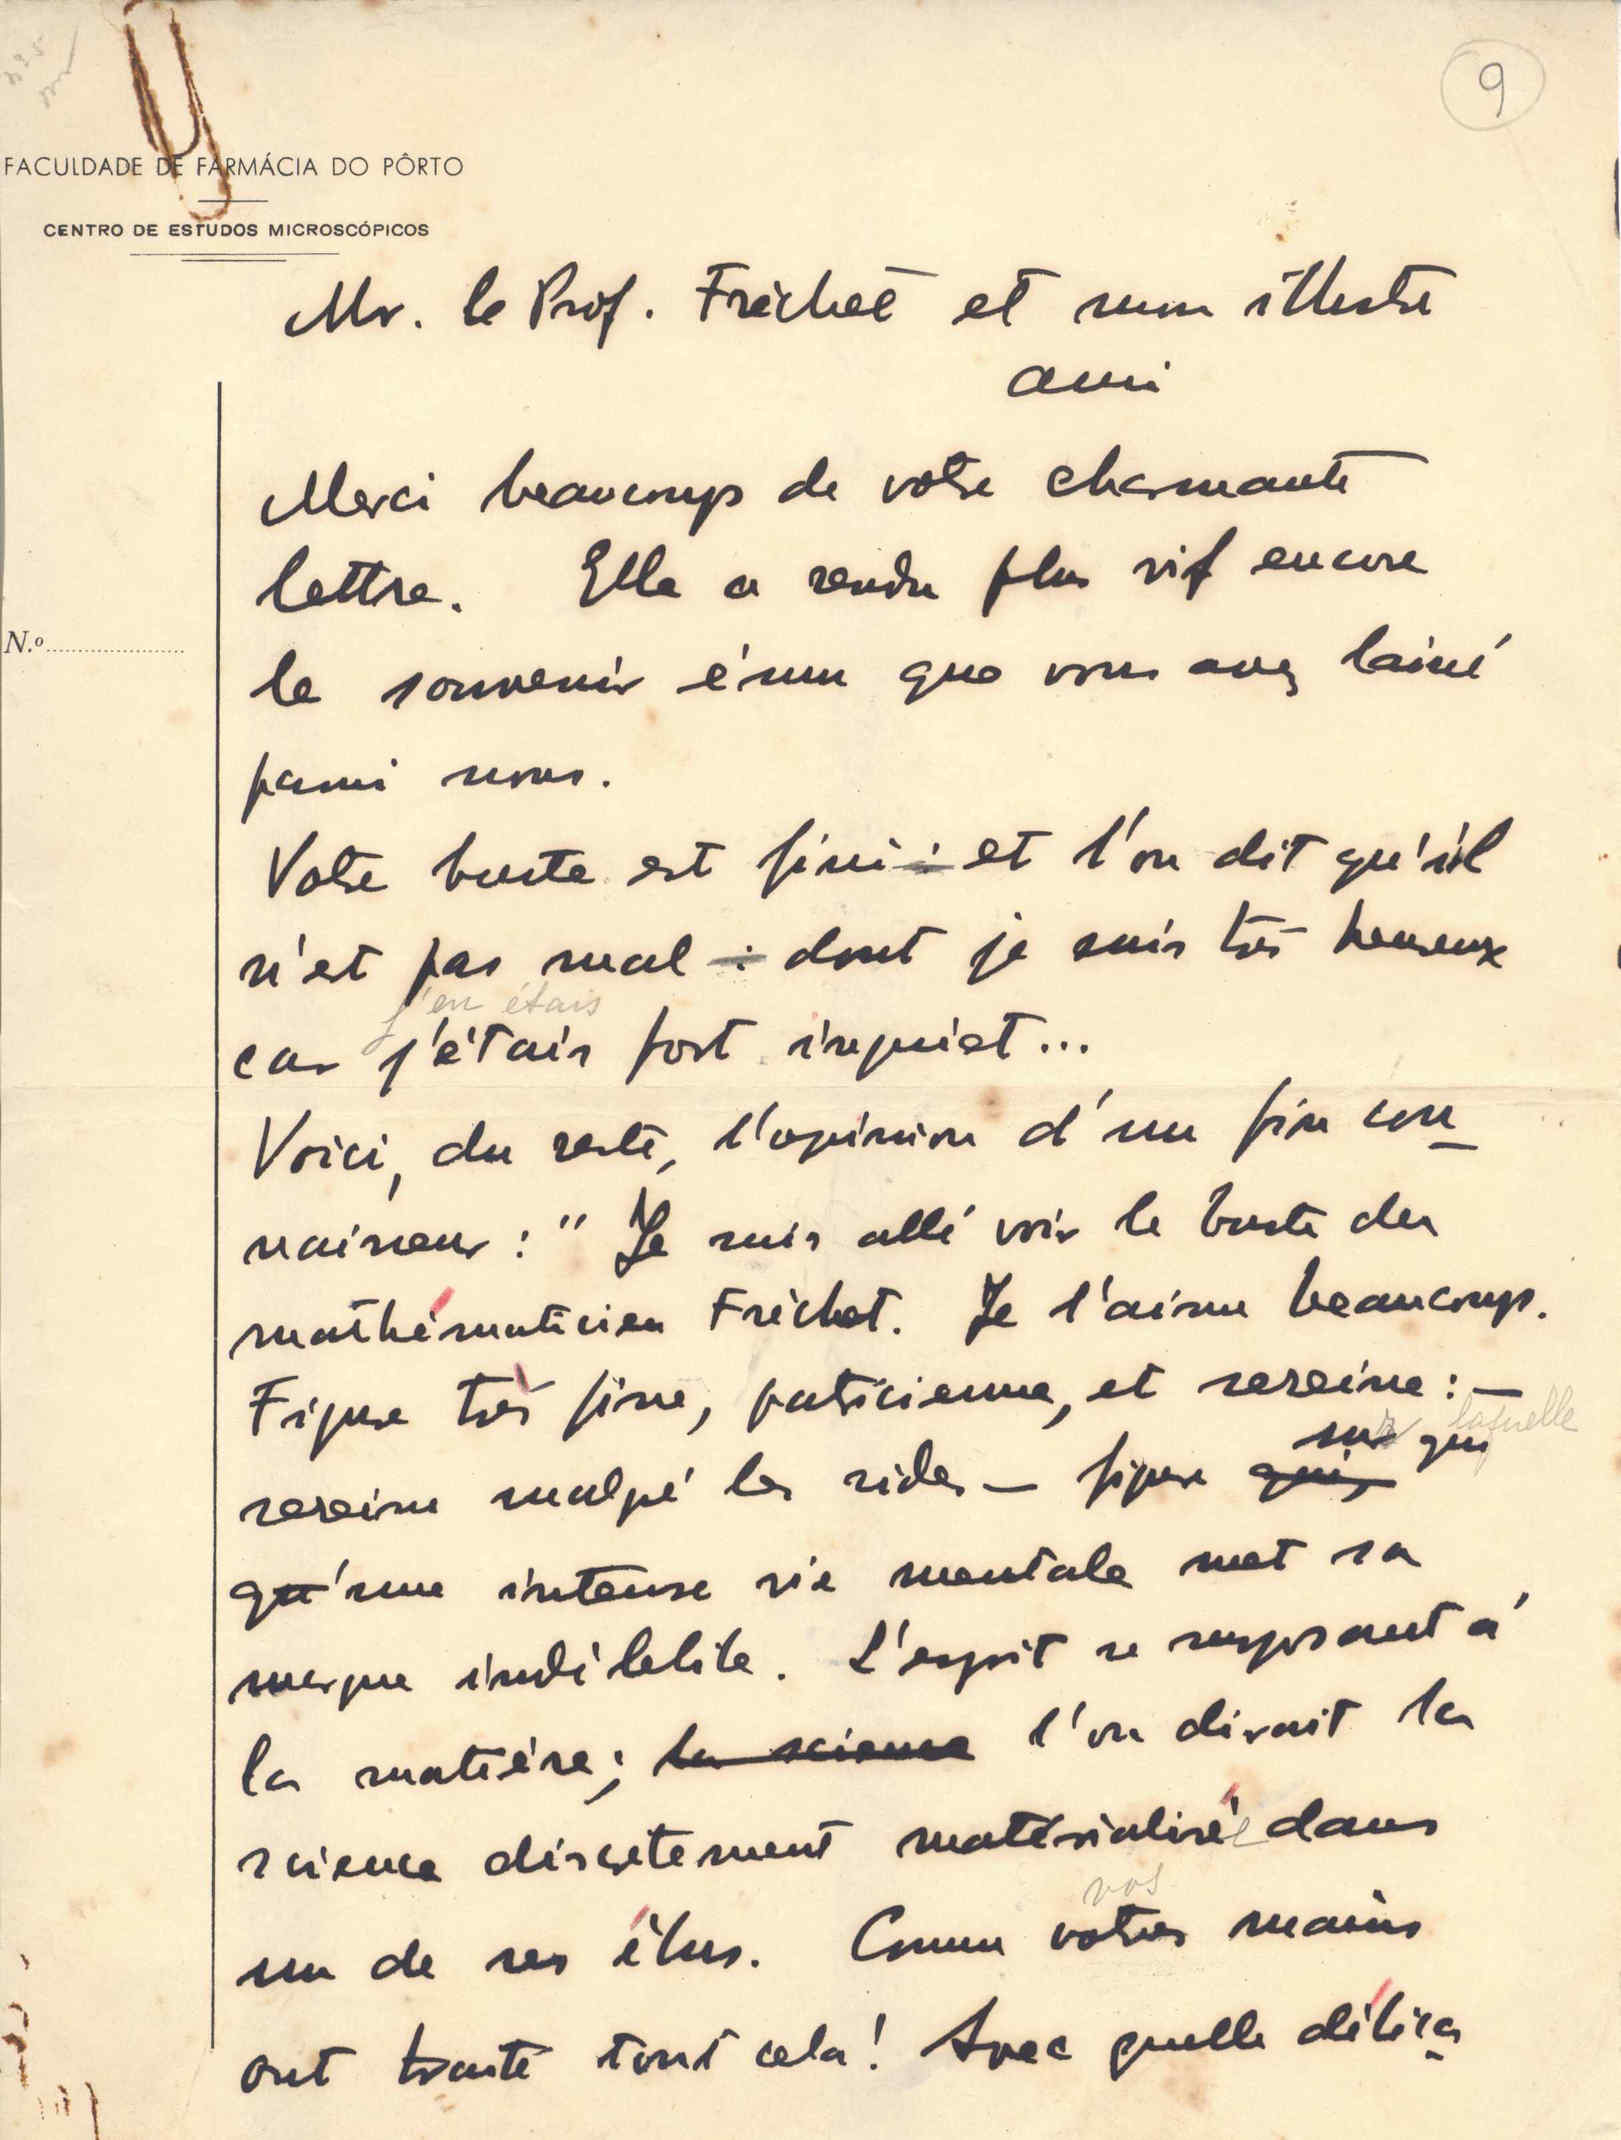 9
FACULDADE DE FARMÁCIA DO PÔRTO
CENTRO DE ESTUDOS MICROSCÓPICOS
Mr. le Prof. Fréchet et mon illustre
ami
Merci beaucoup de votre charmante
lettre. Elle a rendu plus vif encore
N.º
le souvenir ému que vous avez laissé
parmi nous.
Votre buste est fini : et l'on dit qu'il
n'est pas mal : dont je suis très heureux
j'en étais
car j'étais fort inquiet...
Voici, du reste, l'opinion d'un fin con-
naisseur : " Je suis allé voir le buste du
mathématicien Fréchet. Je l'aime beaucoup.
Figure très fine, patricienne, et sereine : —
laquelle
sur qui
sereine malgré les rides — figure qui,
qu'une intense vie mentale met sa
marque indélébile. L'esprit se imposant à
la matière; la science l'on dirait la
science discrètement matérialisée dans
vos
un de ses élus. Comme votres mains
ont traité tout cela! Avec quelle délica-